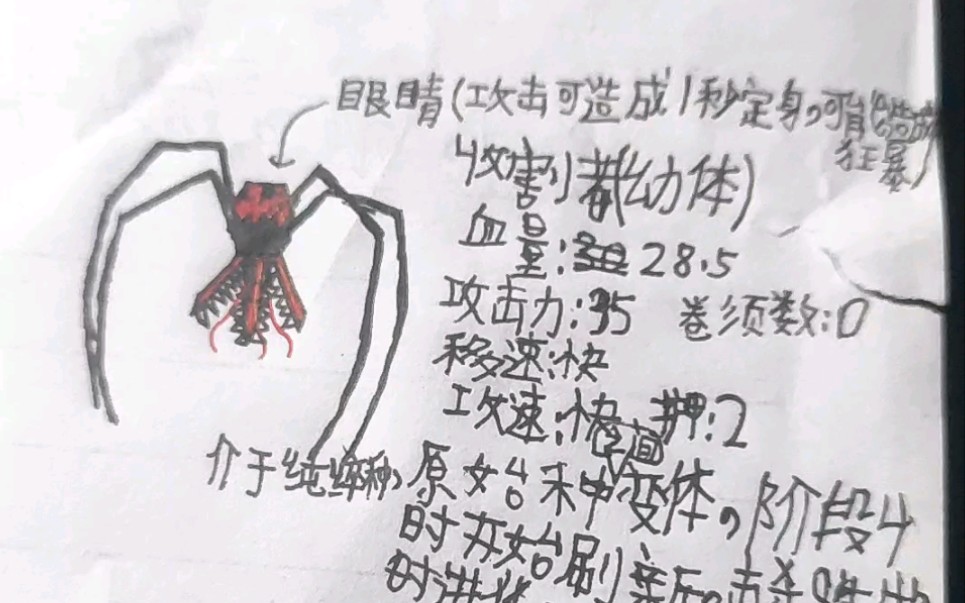 眼睛(攻击可造成1秒定身,可能造成狂暴)
收割者(幼体)
血量:28.5
攻击力:35 卷须数:0
移速:快
攻速:快 护甲:2
介于纯粹种、原始种之间变体。阶段4
时开始刷新
时进